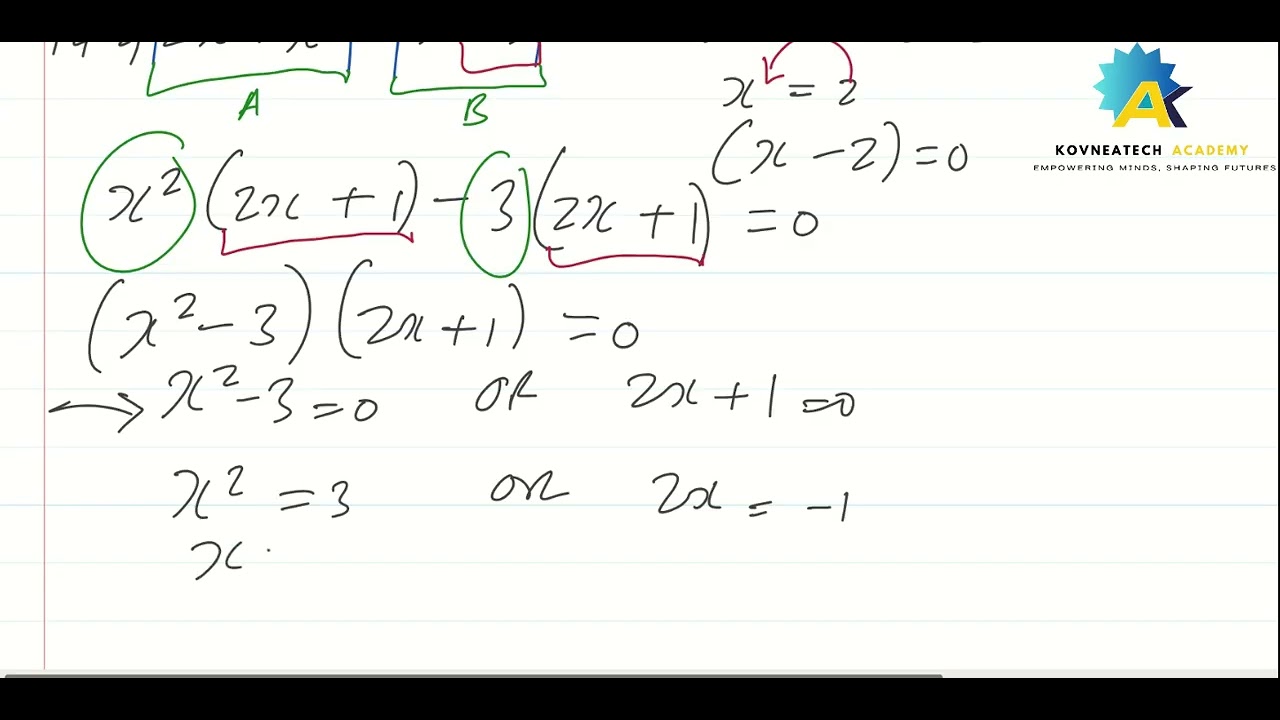 A B
x = 2
(x - 2) = 0
x² (2x + 1) - 3 (2x + 1) = 0
(x² - 3) (2x + 1) = 0
x² - 3 = 0 OR 2x + 1 = 0
x² = 3 OR 2x = -1
x
AK
KOVNEATECH ACADEMY
EMPOWERING MINDS, SHAPING FUTURES